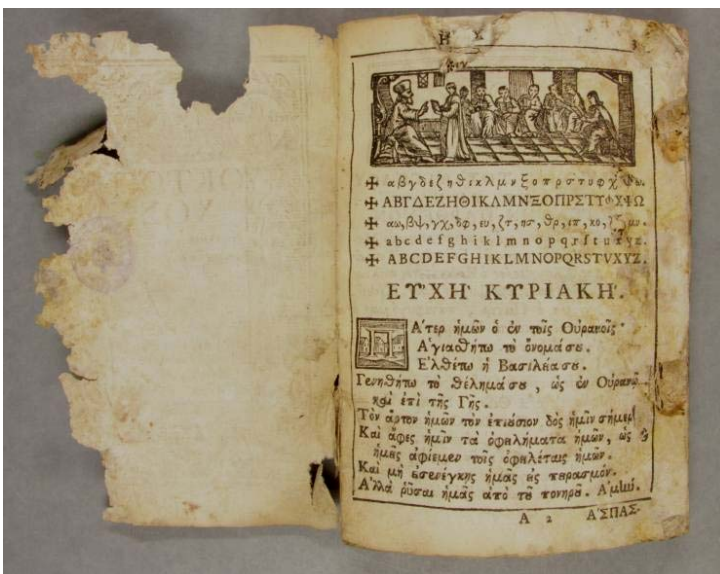 3
✠ αβγδεζηθικλμνξοπρστυφχψω.
✠ ΑΒΓΔΕΖΗΘΙΚΛΜΝΞΟΠΡΣΤΥΦΧΨΩ
✠ αω, βψ, γχ, δφ, ευ, ζτ, ησ, θρ, ιπ, κο, λξ, μν.
✠ abcdefghiklmnopqrſstuxyz.
✠ ABCDEFGHIKLMNOPQRSTVXYZ.
ΕΥ̓ΧῊ ΚΥΡΙΑΚῊ.
ΠΆτερ ἡμῶν ὁ ἐν τοῖς Οὐρανοῖς·
Ἁγιασθήτω τὸ ὄνομάσου.
Ἐλθέτω ἡ Βασιλείασου.
Γενηθήτω τὸ θέλημάσου, ὡς ἐν Οὐρανῷ
καὶ ἐπὶ τῆς Γῆς.
Τὸν ἄρτον ἡμῶν τὸν ἐπιούσιον δὸς ἡμῖν
Καὶ ἄφες ἡμῖν τὰ ὀφειλήματα ἡμῶν, ὡς
ἡμεῖς ἀφίεμεν τοῖς ὀφειλέταις ἡμῶν.
Καὶ μὴ εἰσενέγκῃς ἡμᾶς εἰς πειρασμόν.
Ἀλλὰ ῥῦσαι ἡμᾶς ἀπὸ τοῦ πονηροῦ. Ἀμήν.
A 2 ἌΣΠΑΣ-